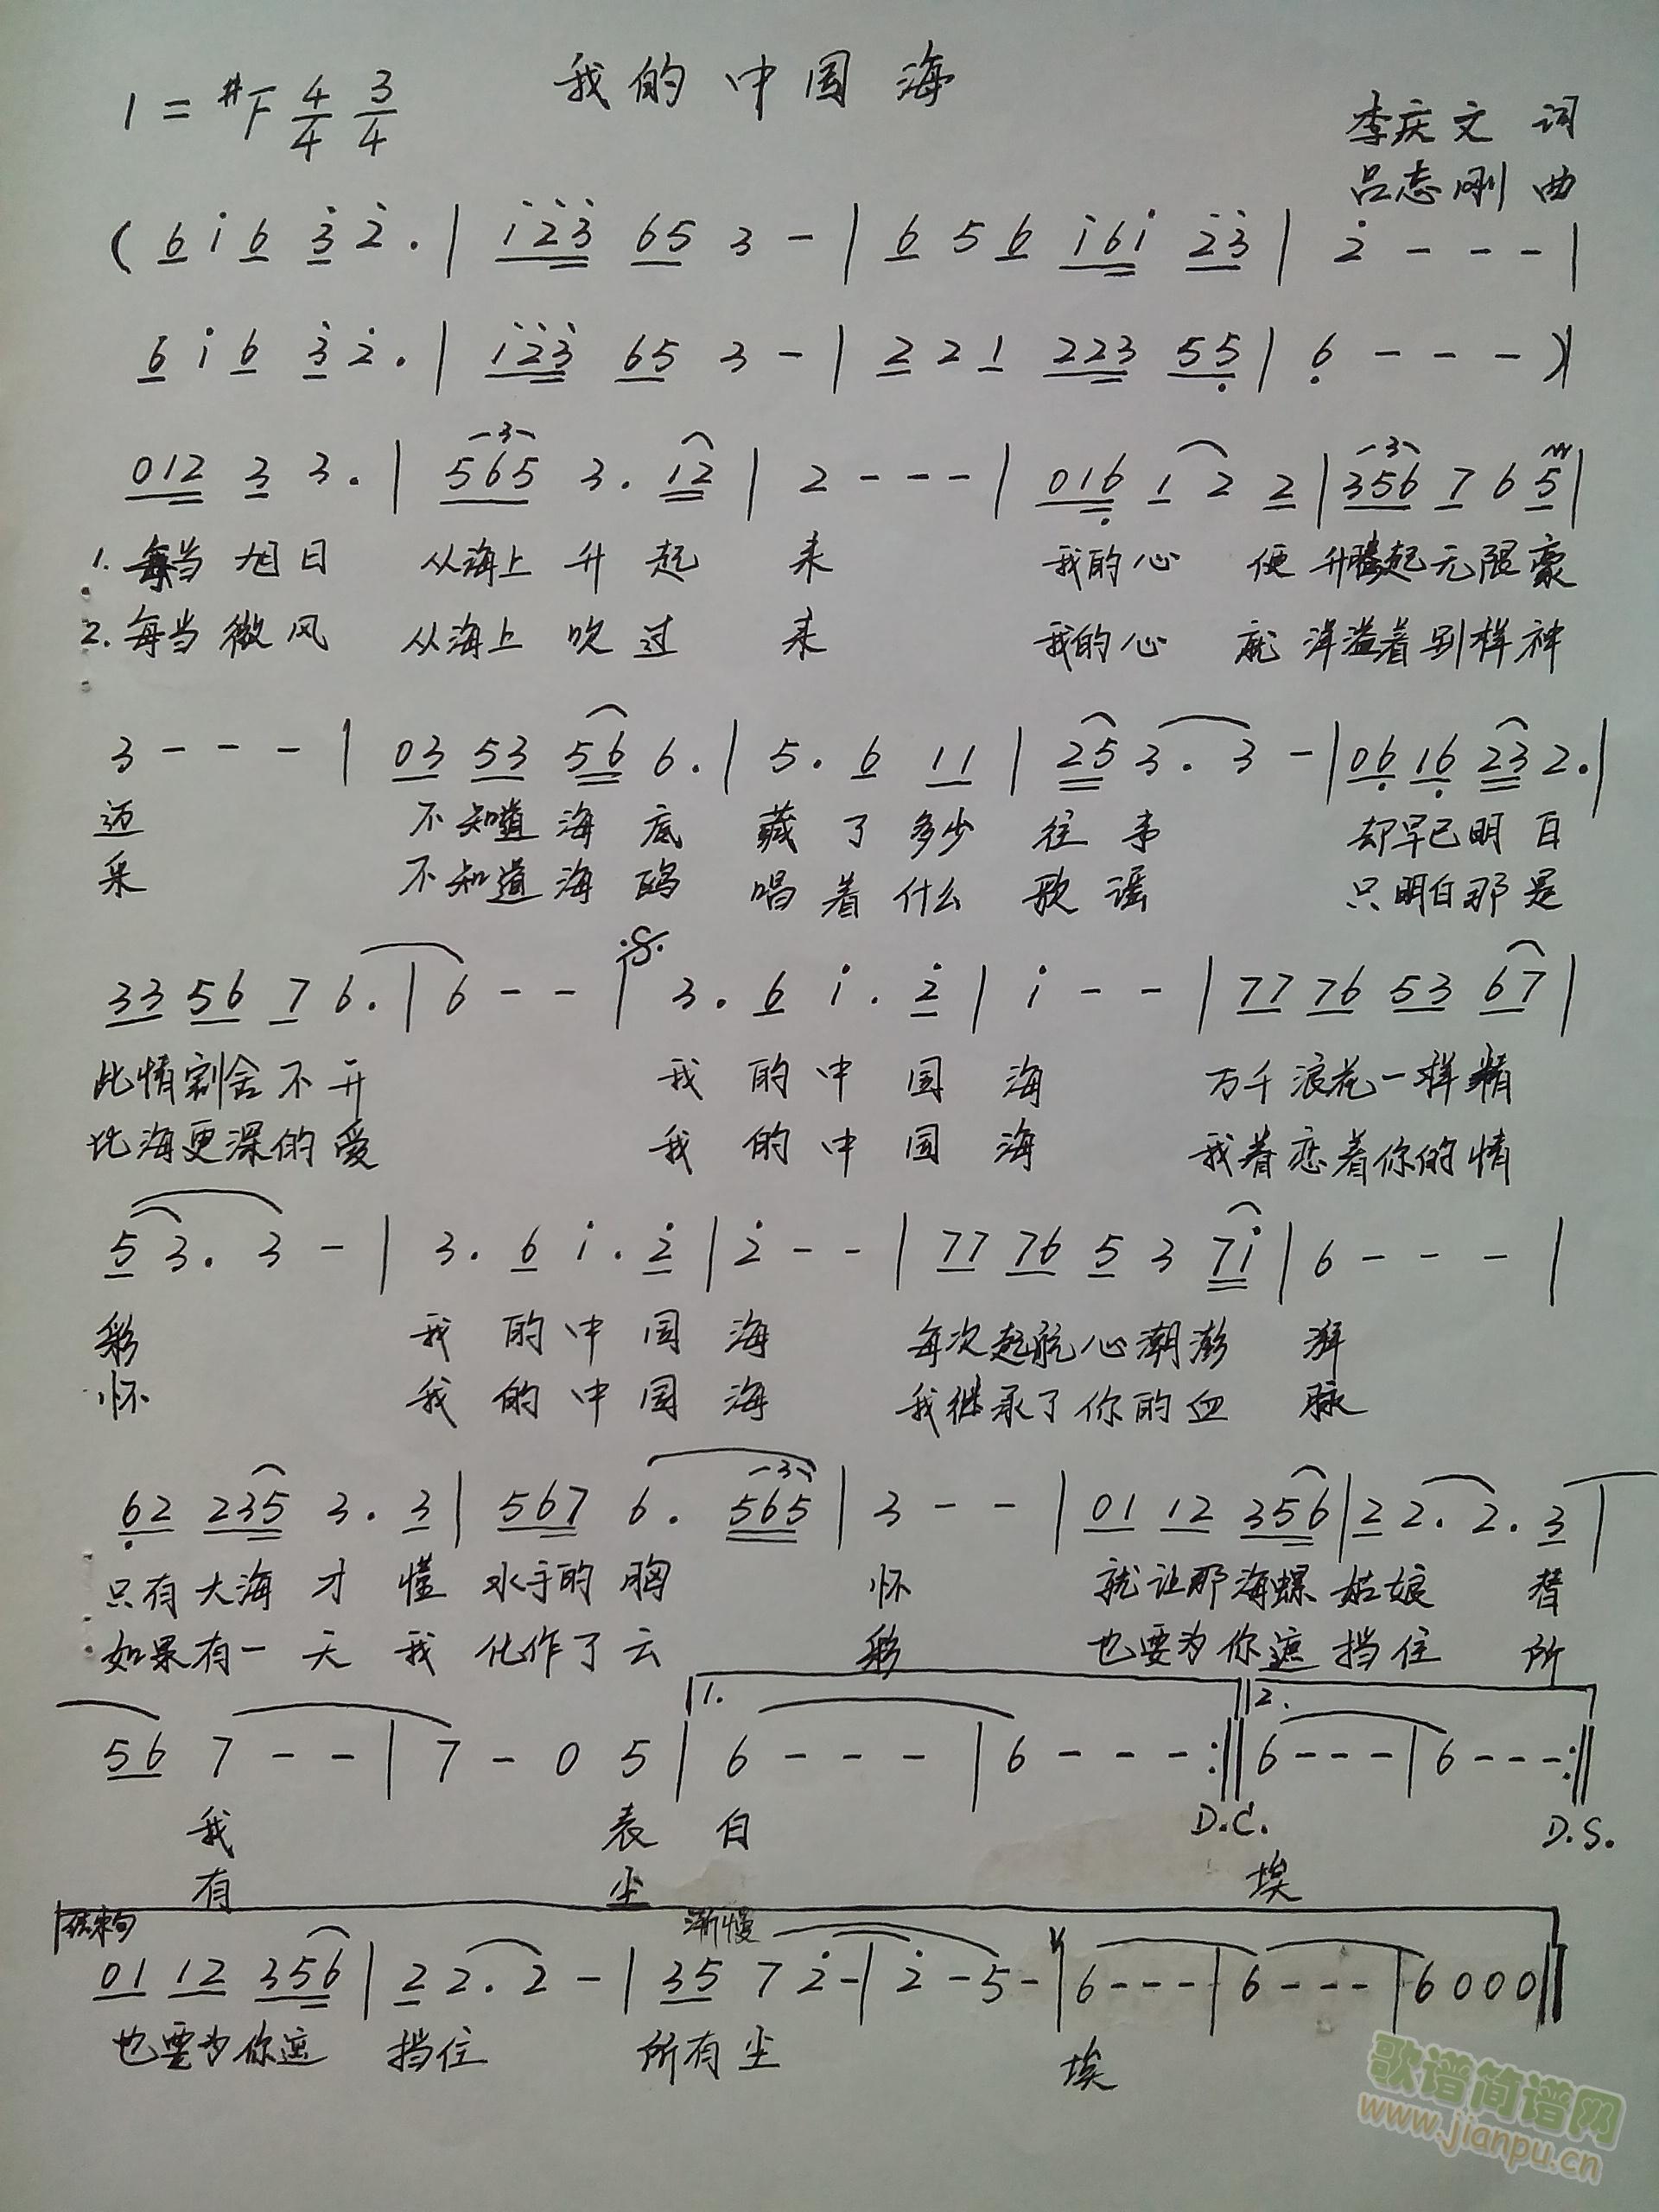 我的中国海
1=#F 4/4 3/4
李庆文 词
吕志刚 曲
( 6 i 6 3 2 . | i23 65 3 - | 6 5 6 i6i 23 | 2 - - - |
6 i 6 3 2 . | i23 65 3 - | 2 2 1 223 55 | 6 - - - )|
012 3 3 . | 565 3 . 12 | 2 - - - | 016 1 2 2 | 356 7 6 5 |
1. 每当旭日 从海上升起来 我的心便升腾起无限豪
2. 每当微风 从海上吹过来 我的心就洋溢着别样神
3 - - - | 03 53 56 6 . | 5 . 6 11 | 25 3 . 3 - | 06 16 23 2 . |
迈 不知道海底 藏了多少往事 却早已明白
采 不知道海鸥 唱着什么歌谣 只明白那是
33 56 7 6 . | 6 - - | 3 . 6 i . 2 | i - - | 77 76 53 67 |
此情割舍不开 我的中国海 万千浪花一样精
比海更深的爱 我的中国海 我眷恋着你的情
5 3 . 3 - | 3 . 6 i . 2 | 2 - - | 77 76 5 3 7i | 6 - - - |
彩 我的中国海 每次起航心潮澎湃
怀 我的中国海 我继承了你的血脉
62 235 3 . 3 | 567 6 . 565 | 3 - - | 01 12 356 | 2 2 . 2 . 3 |
只有大海才懂 水手的胸怀 就让那海螺姑娘 替
如果有一天我 化作了云彩 也要为你遮挡住 所
1. 2.
56 7 - - | 7 - 0 5 | 6 - - - | 6 - - - :|| 6 - - - | 6 - - - :||
我 表白 D.C. D.S.
有 尘 埃
结束句 渐慢
01 12 356 | 2 2 . 2 - | 35 7 2 - | 2 - 5 - | 6 - - - | 6 - - - | 6 0 0 0 ||
也要为你遮 挡住 所有尘 埃
歌谱简谱网
www.jianpu.cn